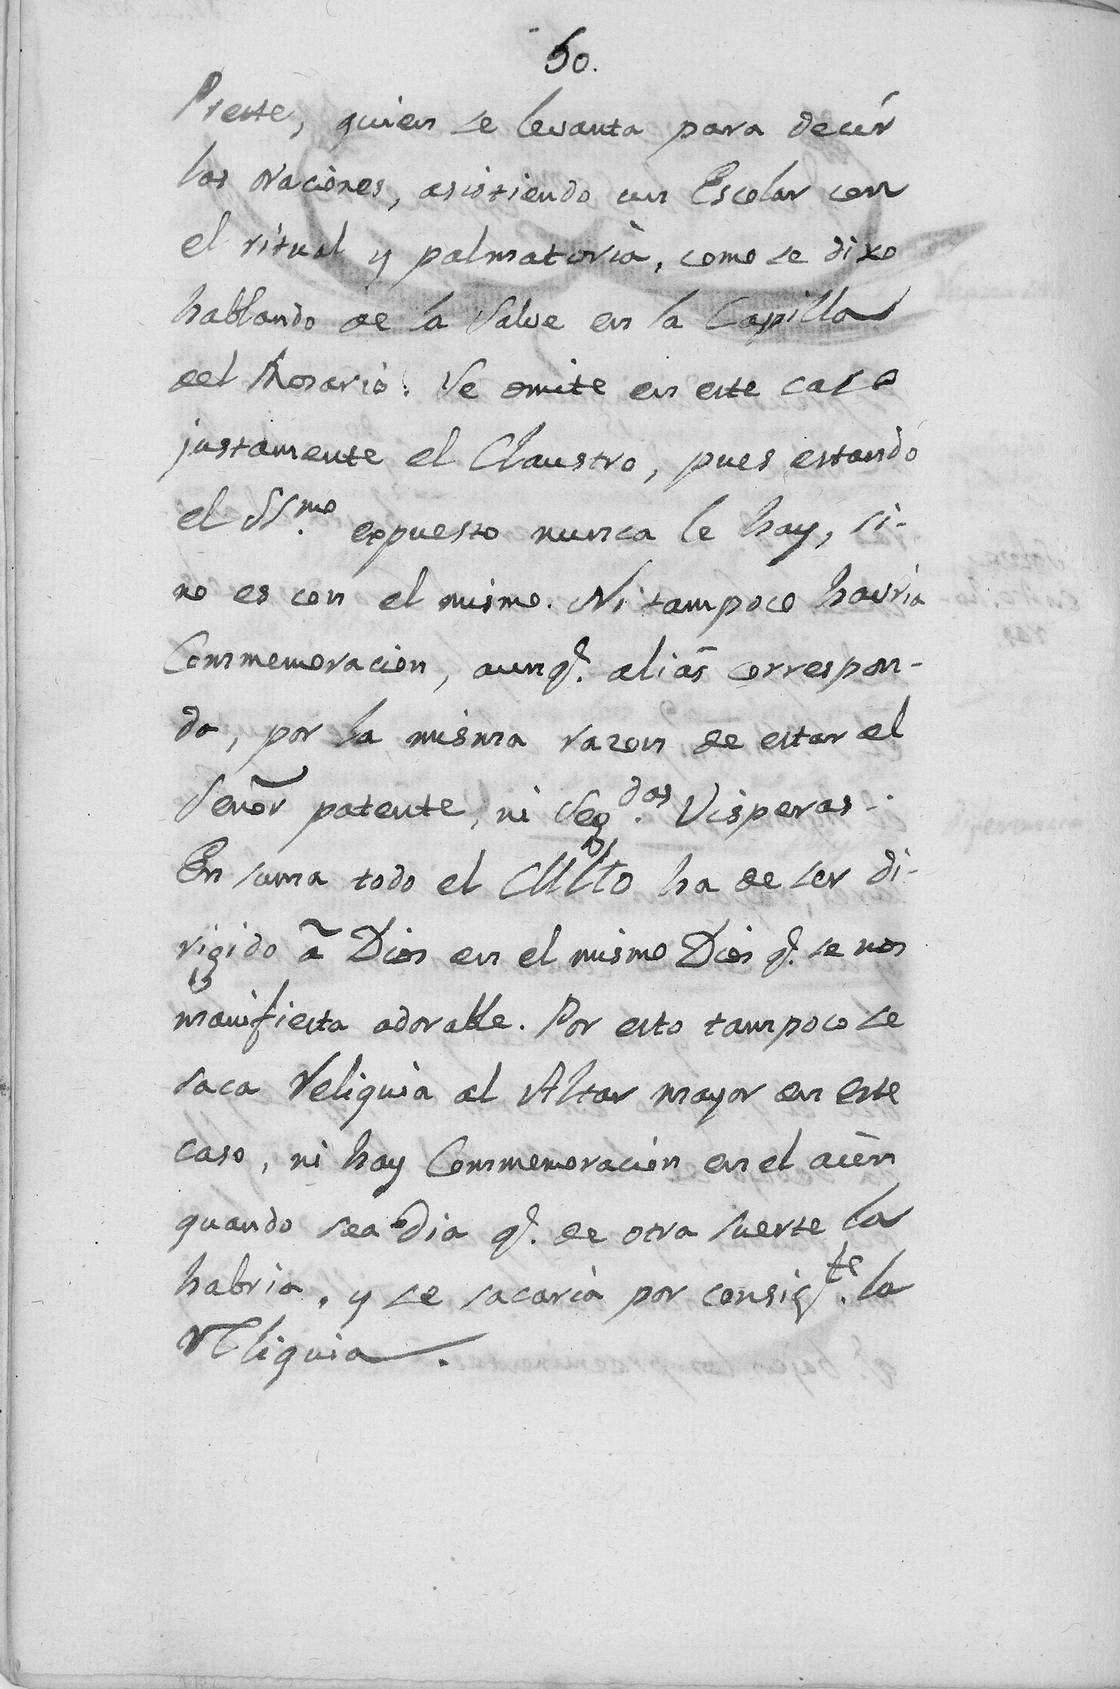 50.
Preste, quien se levanta para decir
las oraciones, asistiendo un Escolar con
el ritual y palmatoria, como se dixo
hablando de la Salve en la Capilla
del Rosario. Se omite en este caso
justamente el Claustro, pues estando
el SS.mo expuesto nunca le hay, si-
no es con el mismo. Ni tampoco havria
Commemoracion, aunq.e aliàs correspon-
da, por la misma razon de estar el
Señor patente, ni Seg.das Visperas.
En suma todo el Culto ha de ser di-
rigido à Dios en el mismo Dios q.e se nos
manifiesta adorable. Por esto tampoco se
saca Reliquia al Altar mayor en este
caso, ni hay Commemoracion en el aùn
quando sea dia q.e de otra suerte la
habria, y se sacaria por consig.te la
Reliquia.